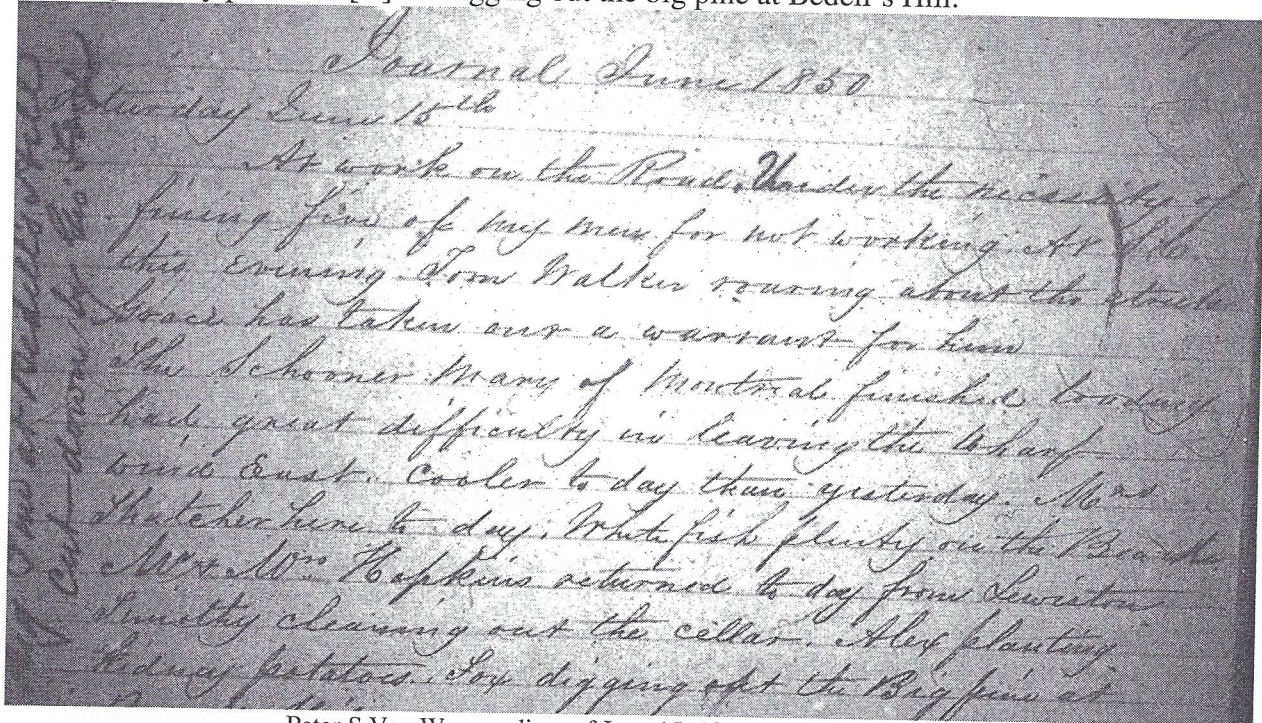 digging out the big pine at Bedell's Hill.
Journal June 1850
Saturday June 15th
At work on the Road. Under the necessity of
fining five of my men for not working. At
this evening Tom Walker roaring about the
Grace has taken out a warrant for him
The Schooner Mary of Montreal finished loading
had great difficulty in leaving the Wharf
wind East. Cooler to day than yesterday. Mrs
Thatcher here to day. White fish plenty on the
Mr & Mrs Hopkins returned to day from Lewiston
Timothy cleaning out the cellar. Alex planting
Kidney potatoes. Fox digging out the Big pine at
cut down by
Peter S Van diary of June 15